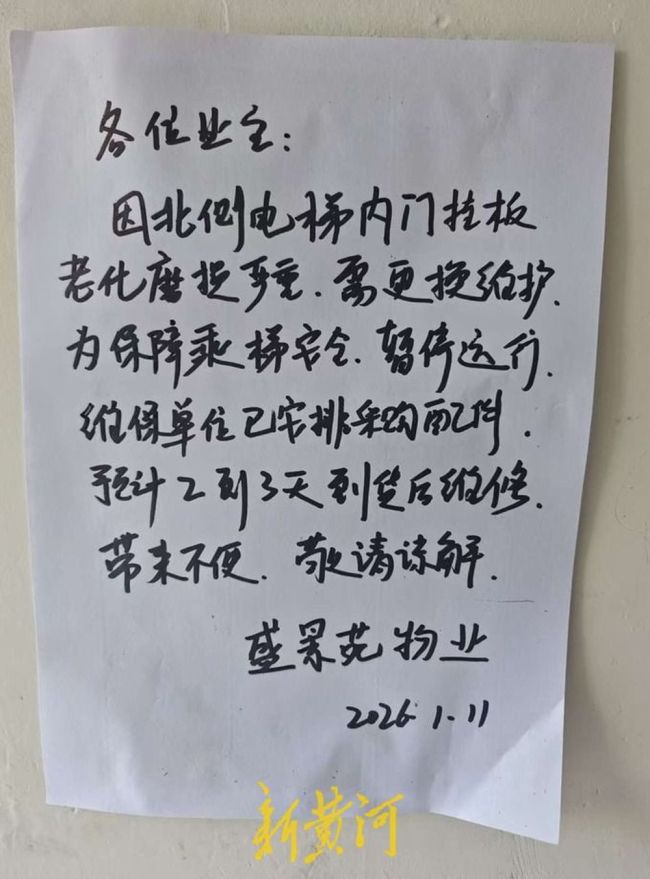 各位业主:
因北侧电梯内门挂板
老化磨损严重.需更换维护.
为保障乘梯安全.暂停运行.
维保单位已安排采购配件.
预计2到3天到货后维修.
带来不便.敬请谅解.
盛景苑物业
2026.1.11
新黄河